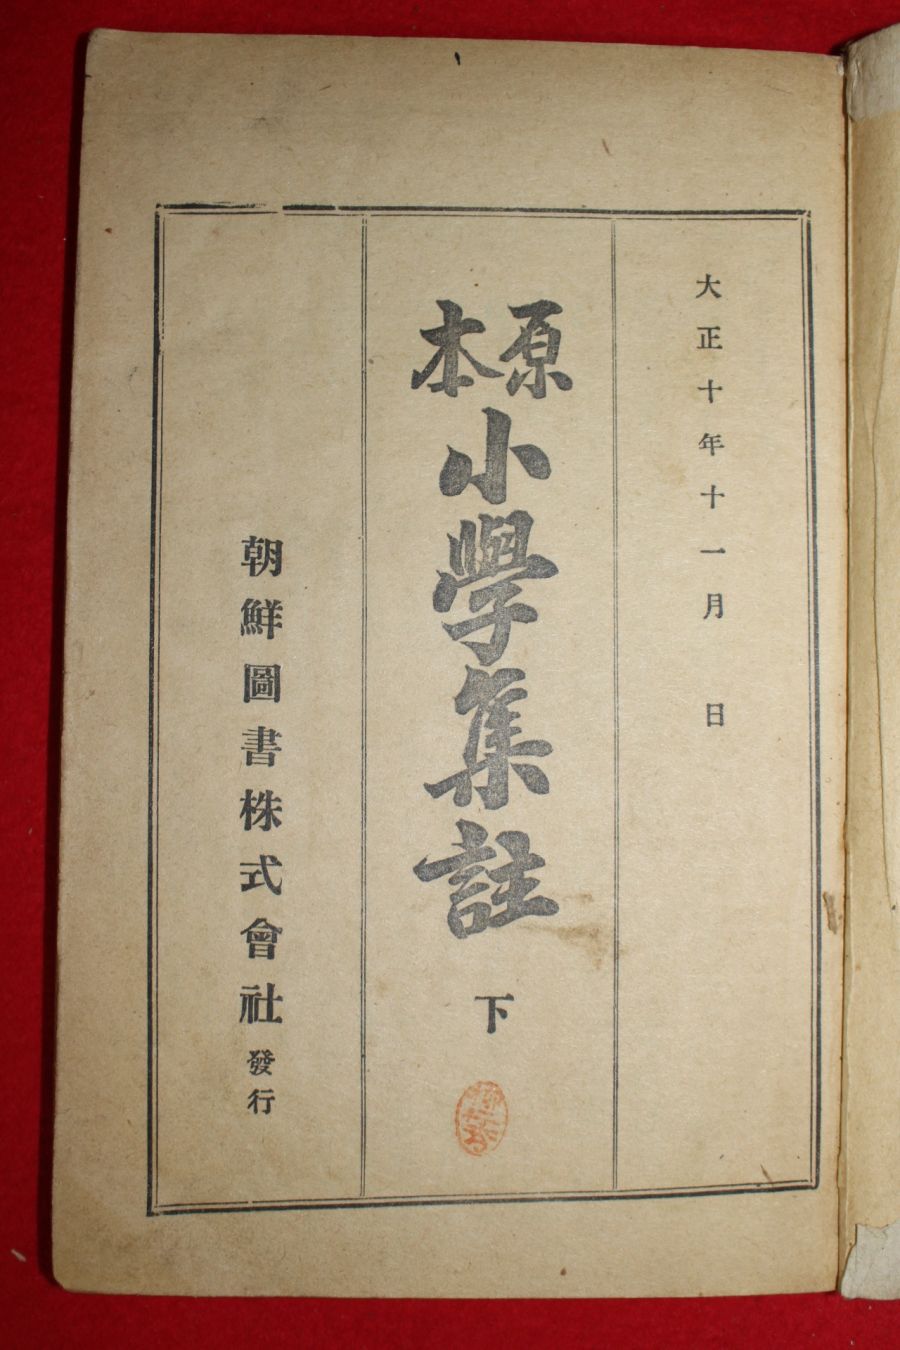 大正十年十一月　日
原本
小學集註 下
朝鮮圖書株式會社 發行